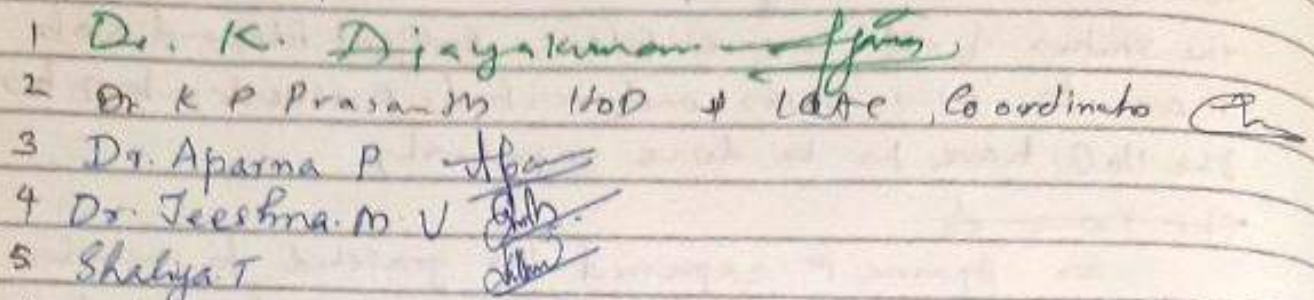 1 Dr. K. Djayakumar
2 Dr K P Prasanth HoD & IQAC Coordinator
3 Dr. Aparna P
4 Dr. Jeeshna. M V
5 Shahiya T